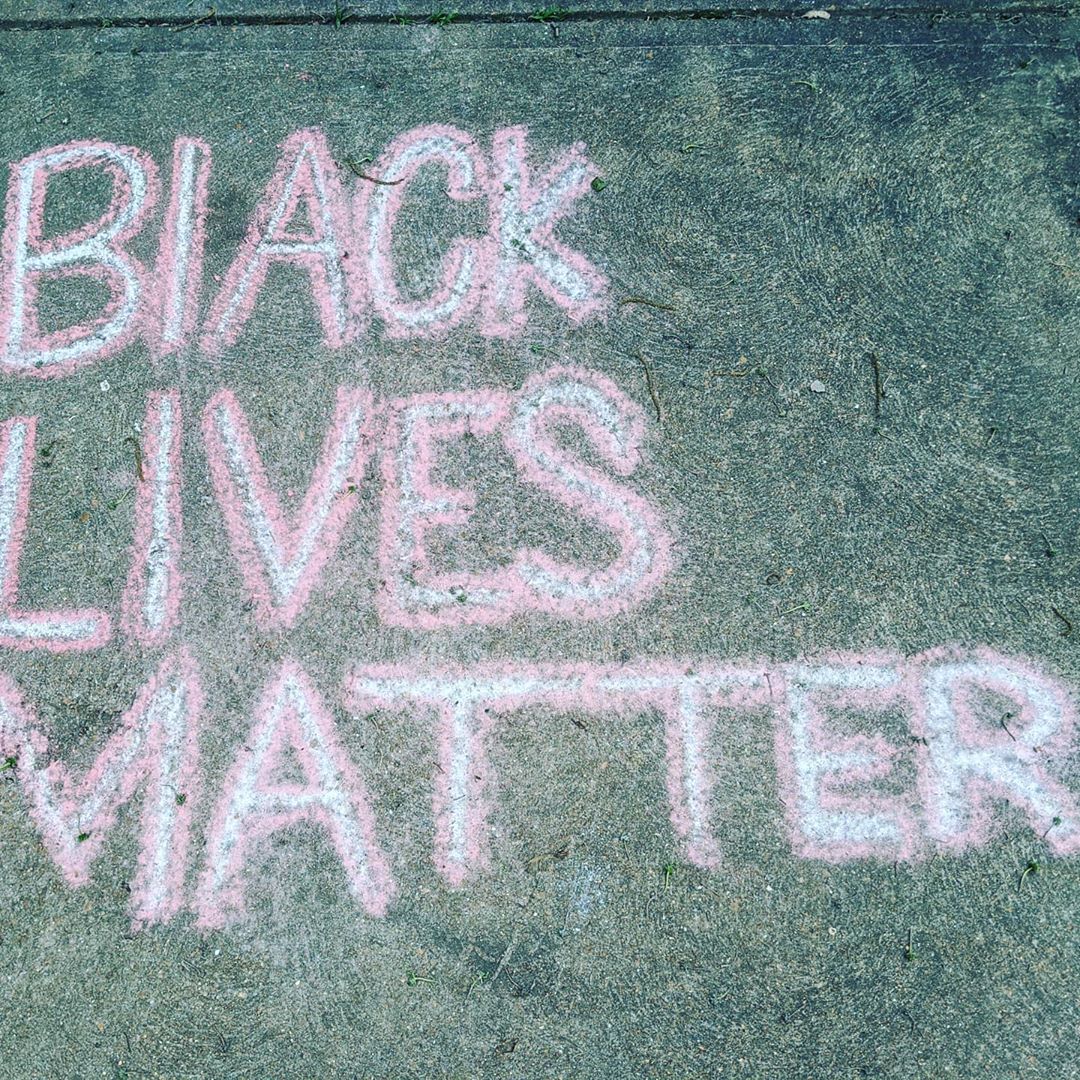 BlACK
LIVES
MATTER